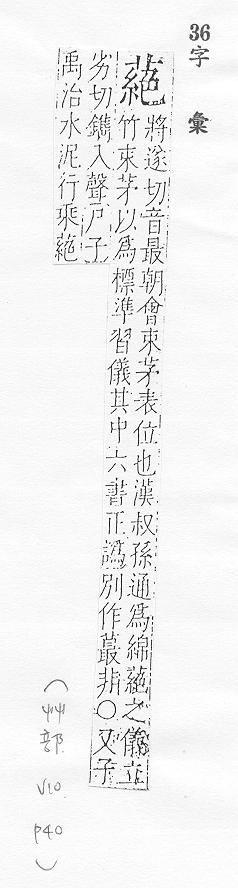 36
字彙
蕝
將遂切音最朝會束茅表位也漢叔孫通爲綿蕝之儀立
竹束茅以爲標準習儀其中六書正譌別作蕞非○又子
劣切鐫入聲尸子
禹治水泥行乘蕝
(艸部 V10 P40)